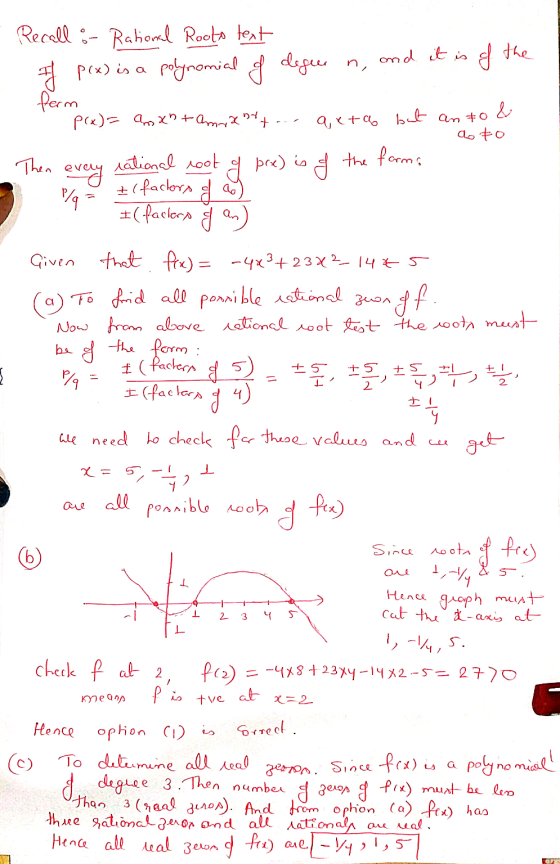 Recall :- Rational Roots test
If p(x) is a polynomial of degree n, and it is of the
form
p(x) = aₙxⁿ + aₙ₋₁xⁿ⁻¹ + --- a₁x + a₀ but aₙ ≠ 0 &
a₀ ≠ 0
Then every rational root of p(x) is of the form:
p/q = ±(factors of a₀) / ±(factors of aₙ)
Given that f(x) = -4x³ + 23x² - 14x - 5
(a) To find all possible rational zeros of f.
Now from above rational root test the roots must
be of the form:
p/q = ±(factors of 5) / ±(factors of 4) = ±5/1, ±5/2, ±5/4, ±1/1, ±1/2,
±1/4
We need to check for these values and we get
x = 5, -1/4, 1
are all possible roots of f(x)
(b)
1
-1 1 2 3 4 5
1
Since roots of f(x)
are 1, -1/4 & 5.
Hence graph must
cut the x-axis at
1, -1/4, 5.
Check f at 2, f(2) = -4x8 + 23x4 - 14x2 - 5 = 27 > 0
means f is +ve at x = 2
Hence option (1) is correct.
(c) To determine all real zeros. Since f(x) is a polynomial
of degree 3. Then number of zeros of f(x) must be less
than 3 (real zeros). And from option (a) f(x) has
three rational zeros and all rationals are real.
Hence all real zeros of f(x) are -1/4, 1, 5